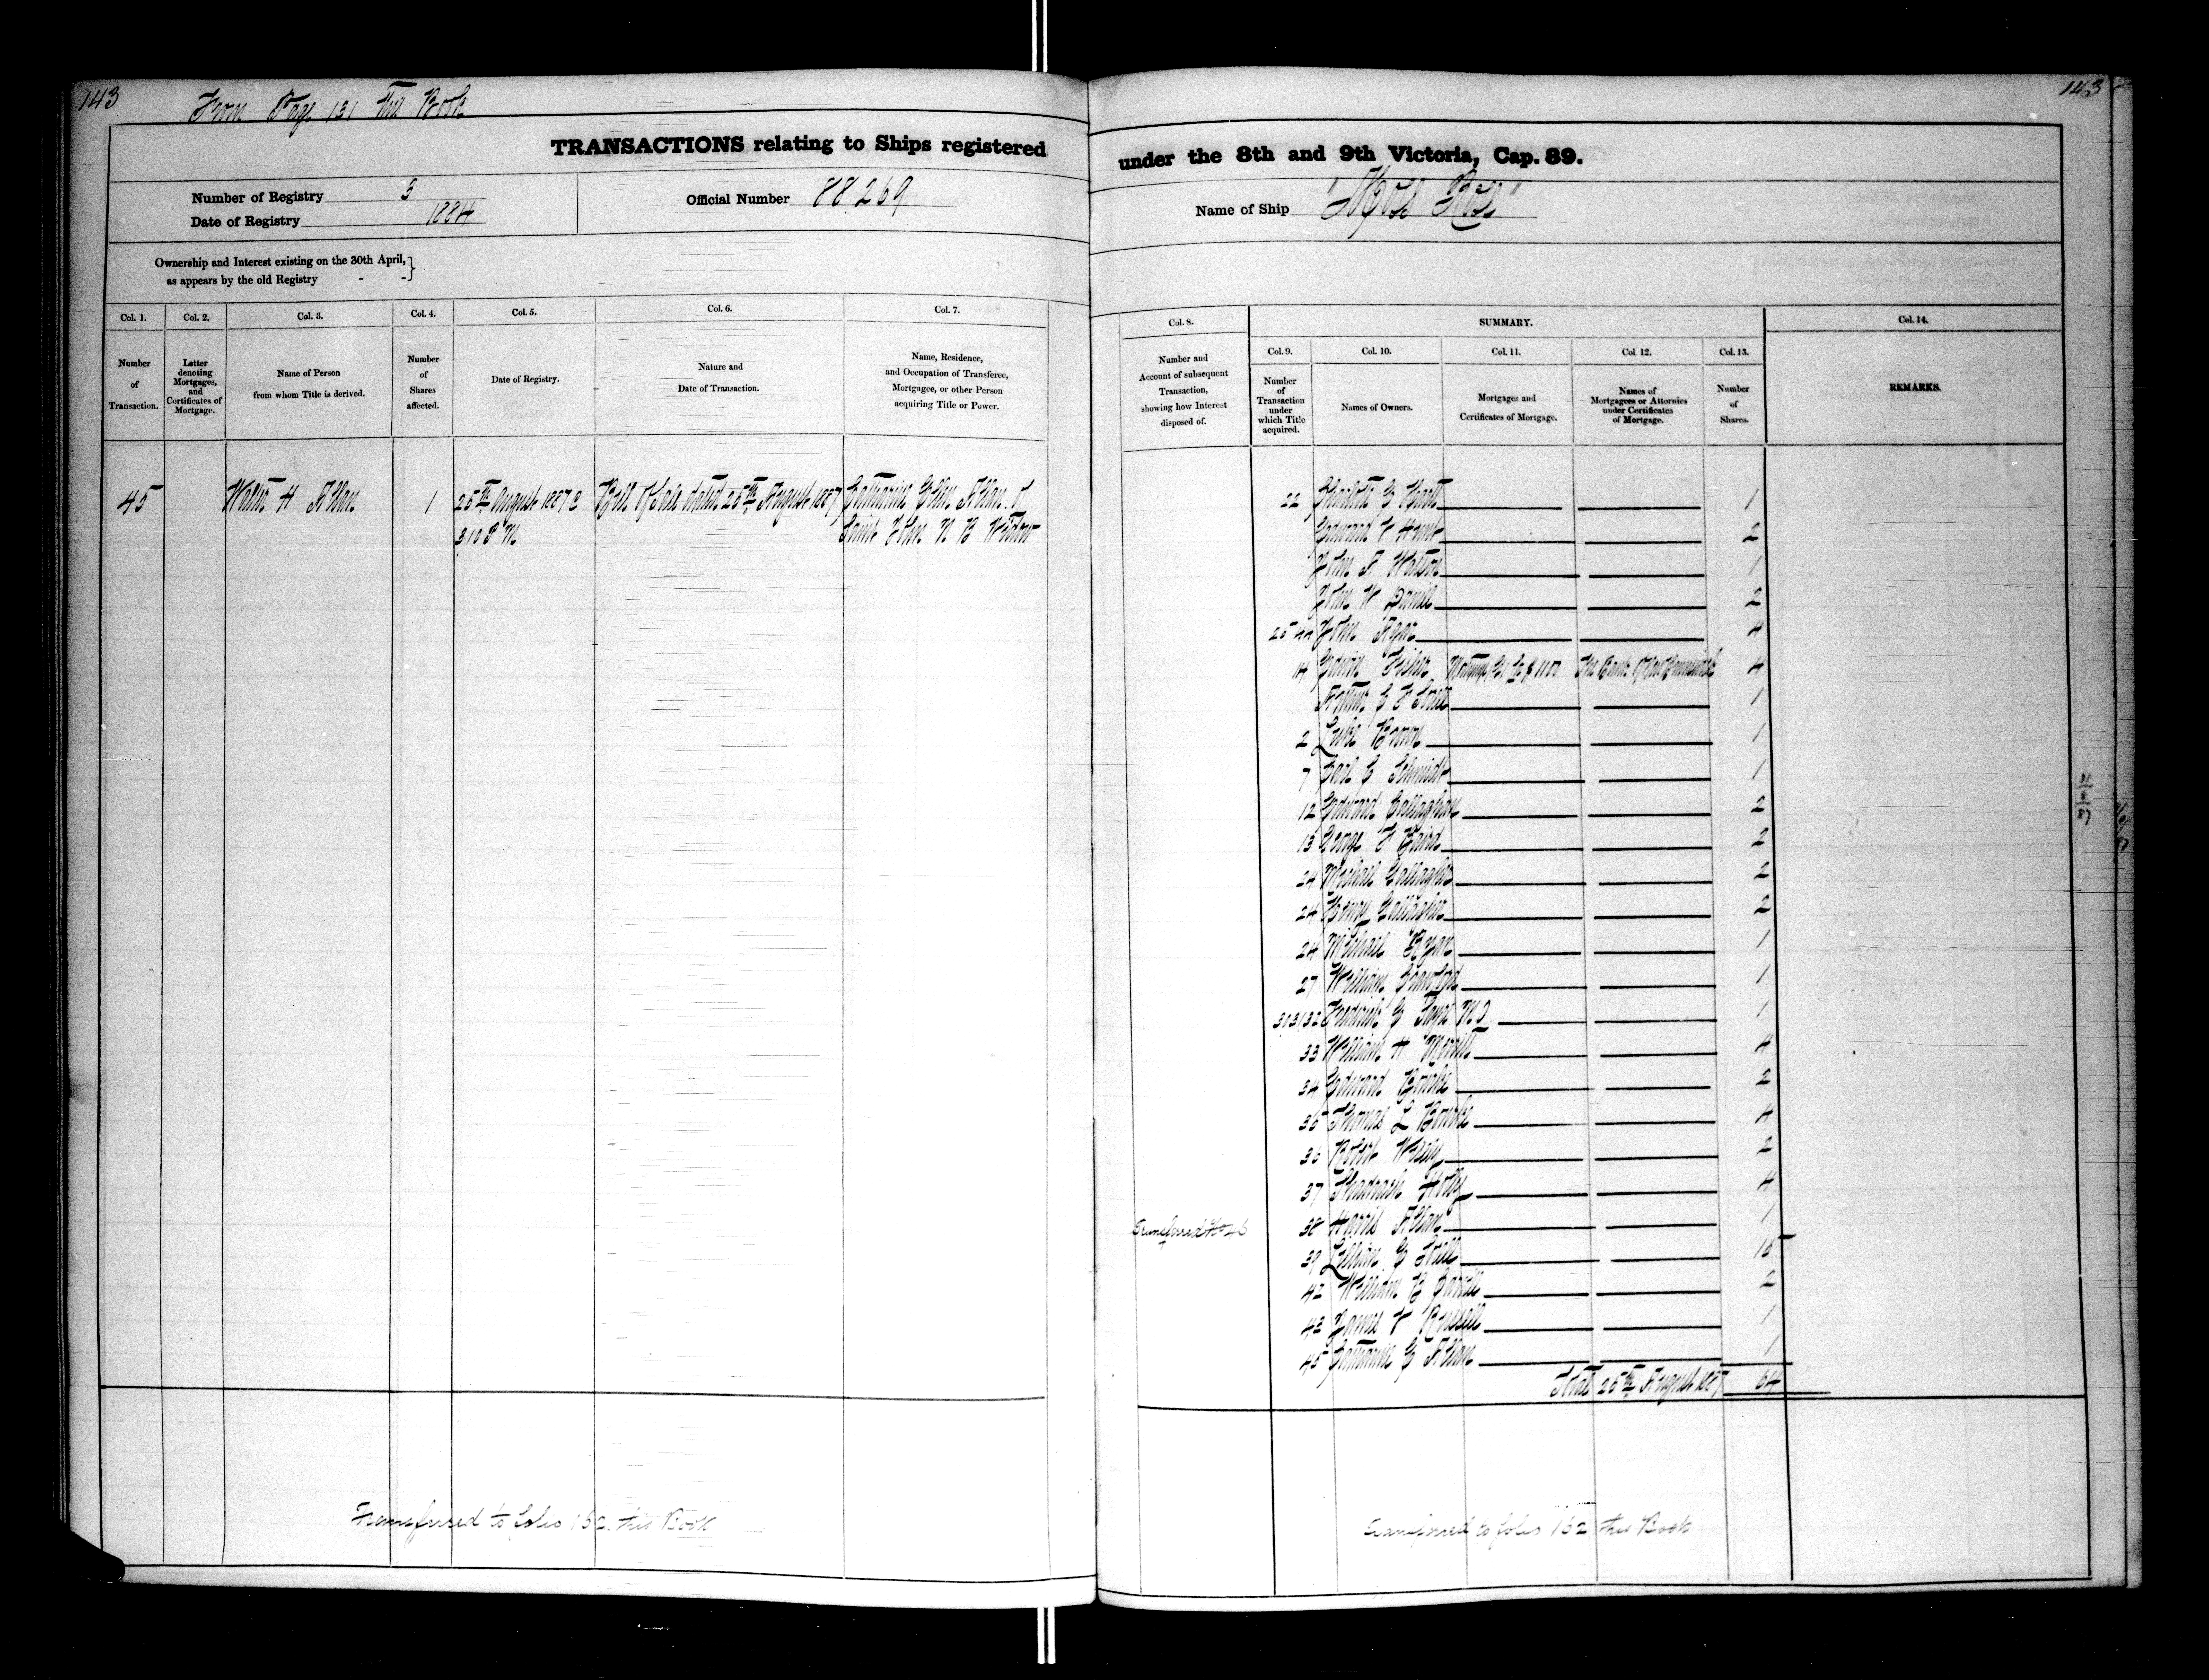 143
From Page 131 This Book
TRANSACTIONS relating to Ships registered
Number of Registry 3
Date of Registry 1884
Official Number 88,269
Ownership and Interest existing on the 30th April,
as appears by the old Registry - -
Col. 1. Col. 2. Col. 3. Col. 4. Col. 5. Col. 6. Col. 7.
Number of Transaction.
Letter denoting Mortgages, and Certificates of Mortgage.
Name of Person from whom Title is derived.
Number of Shares affected.
Date of Registry.
Nature and Date of Transaction.
Name, Residence, and Occupation of Transferee, Mortgagee, or other Person acquiring Title or Power.
45 Walter H Allan 1 25th August 1887 @ Bill of Sale dated 25th August 1887 Catharine Ellen Allan of
3.10 P M Saint John N B Widow
Transferred to folio 152 this Book
143
under the 8th and 9th Victoria, Cap. 89.
Name of Ship
Col. 8. SUMMARY. Col. 14.
Number and Account of subsequent Transaction, showing how Interest disposed of.
Col. 9. Col. 10. Col. 11. Col. 12. Col. 13.
Number of Transaction under which Title acquired.
Names of Owners.
Mortgages and Certificates of Mortgage.
Names of Mortgagees or Attornies under Certificates of Mortgage.
Number of Shares.
REMARKS.
22 Charlotte 1
Edward 2
John F Watson 1
John W Daniel 2
25 44 John 4
14 Edwin Fisher Mortgage for $1100 The Bank of New Brunswick 4
Arthur 1
2 Luke Brown 1
7 Carl E Schmidt 1
12 Edward Callaghan 2
13 George F Baird 2
24 Michael Gallagher 2
24 Henry Gallagher 2
24 Michael Ryan 1
27 William Crawford 1
30 31 32 Frederick M.D. 1
33 William H Merritt 4
34 Edward Bourke 2
35 Thomas L Bourke 4
36 Robert Wisely 2
37 Shadrach Holly 4
Transferred No 46 38 Harris Allan 1
39 Lillian 15
42 William B 2
43 James Russell 1
45 Catharine E Allan 1
Total 25th August 1887 64
Transferred to folio 152 this Book
31
8
87